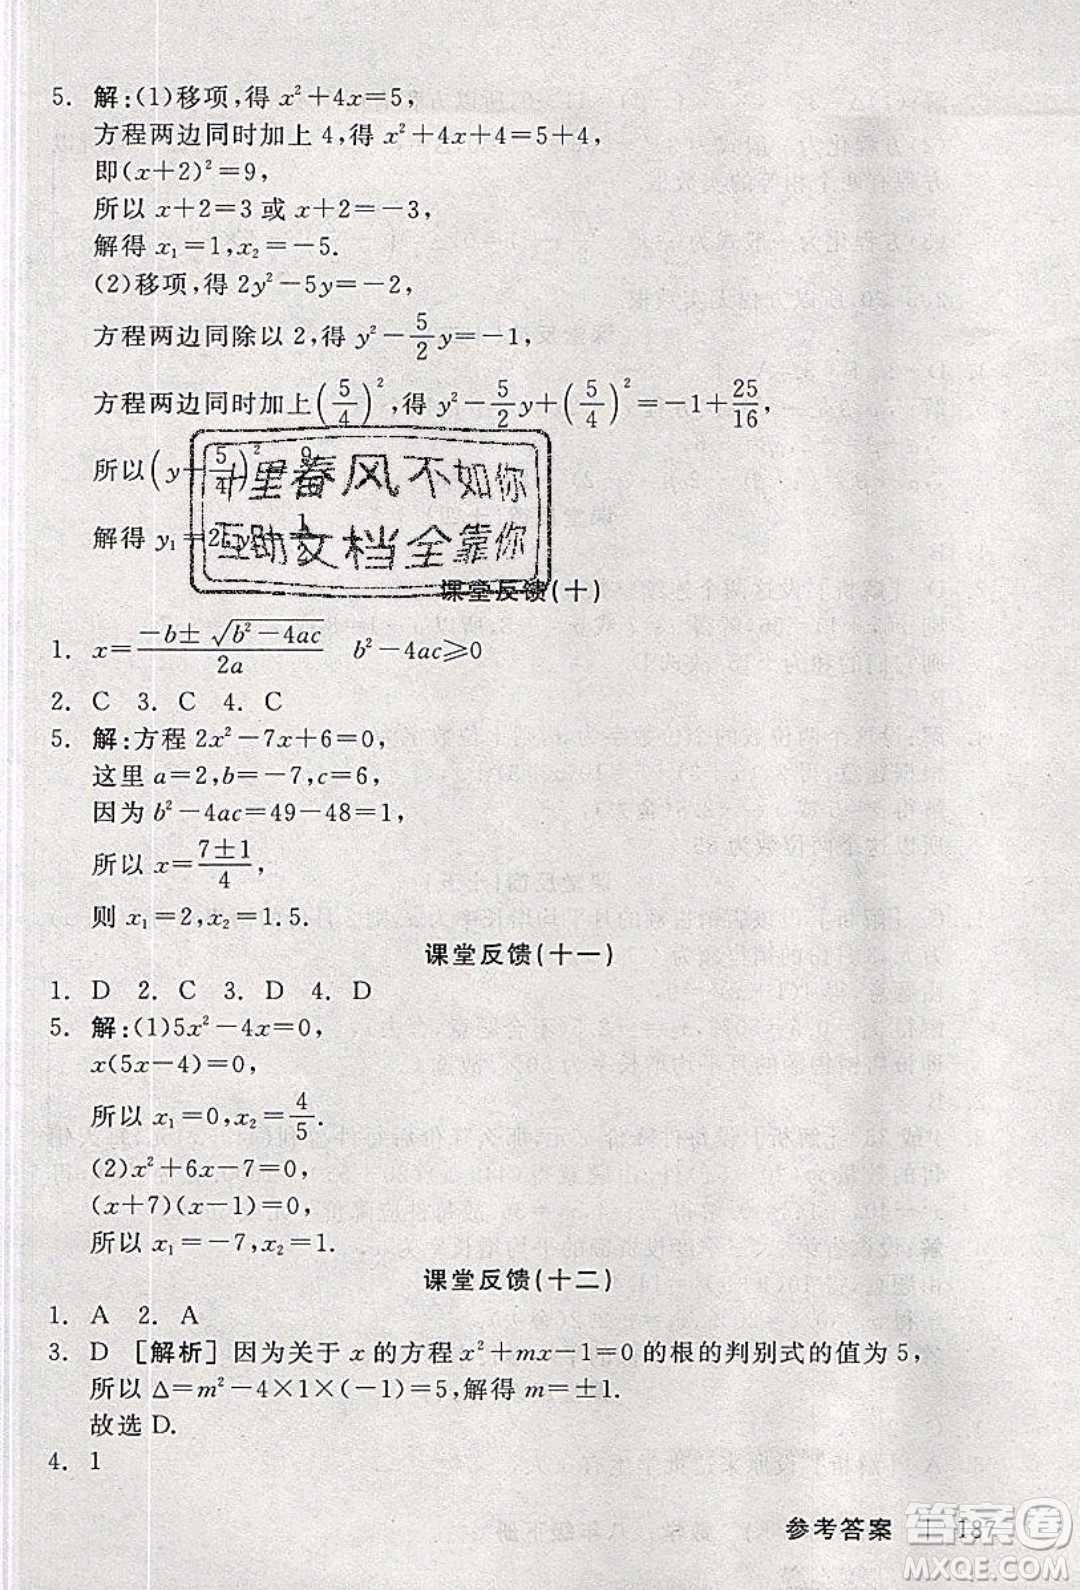 5. 解:(1)移项,得 x²+4x=5,
方程两边同时加上 4,得 x²+4x+4=5+4,
即(x+2)²=9,
所以 x+2=3 或 x+2=-3,
解得 x₁=1,x₂=-5.
(2)移项,得 2y²-5y=-2,
方程两边同除以 2,得 y²-5/2y=-1,
方程两边同时加上(5/4)²,得 y²-5/2y+(5/4)²=-1+25/16,
所以(y+5/4)²= 9
解得 y₁=2,y 1/2
十里春风不如你
互助文档全靠你
课堂反馈(十)
1. x=(-b±√(b²-4ac))/2a b²-4ac≥0
2. C 3. C 4. C
5. 解:方程 2x²-7x+6=0,
这里 a=2,b=-7,c=6,
因为 b²-4ac=49-48=1,
所以 x=(7±1)/4,
则 x₁=2,x₂=1.5.
课堂反馈(十一)
1. D 2. C 3. D 4. D
5. 解:(1)5x²-4x=0,
x(5x-4)=0,
所以 x₁=0,x₂=4/5.
(2)x²+6x-7=0,
(x+7)(x-1)=0,
所以 x₁=-7,x₂=1.
课堂反馈(十二)
1. A 2. A
3. D [解析]因为关于 x 的方程 x²+mx-1=0 的根的判别式的值为 5,
所以 Δ=m²-4×1×(-1)=5,解得 m=±1.
故选 D.
4. 1
参考答案 | 187
答案圈
MXQE.COM